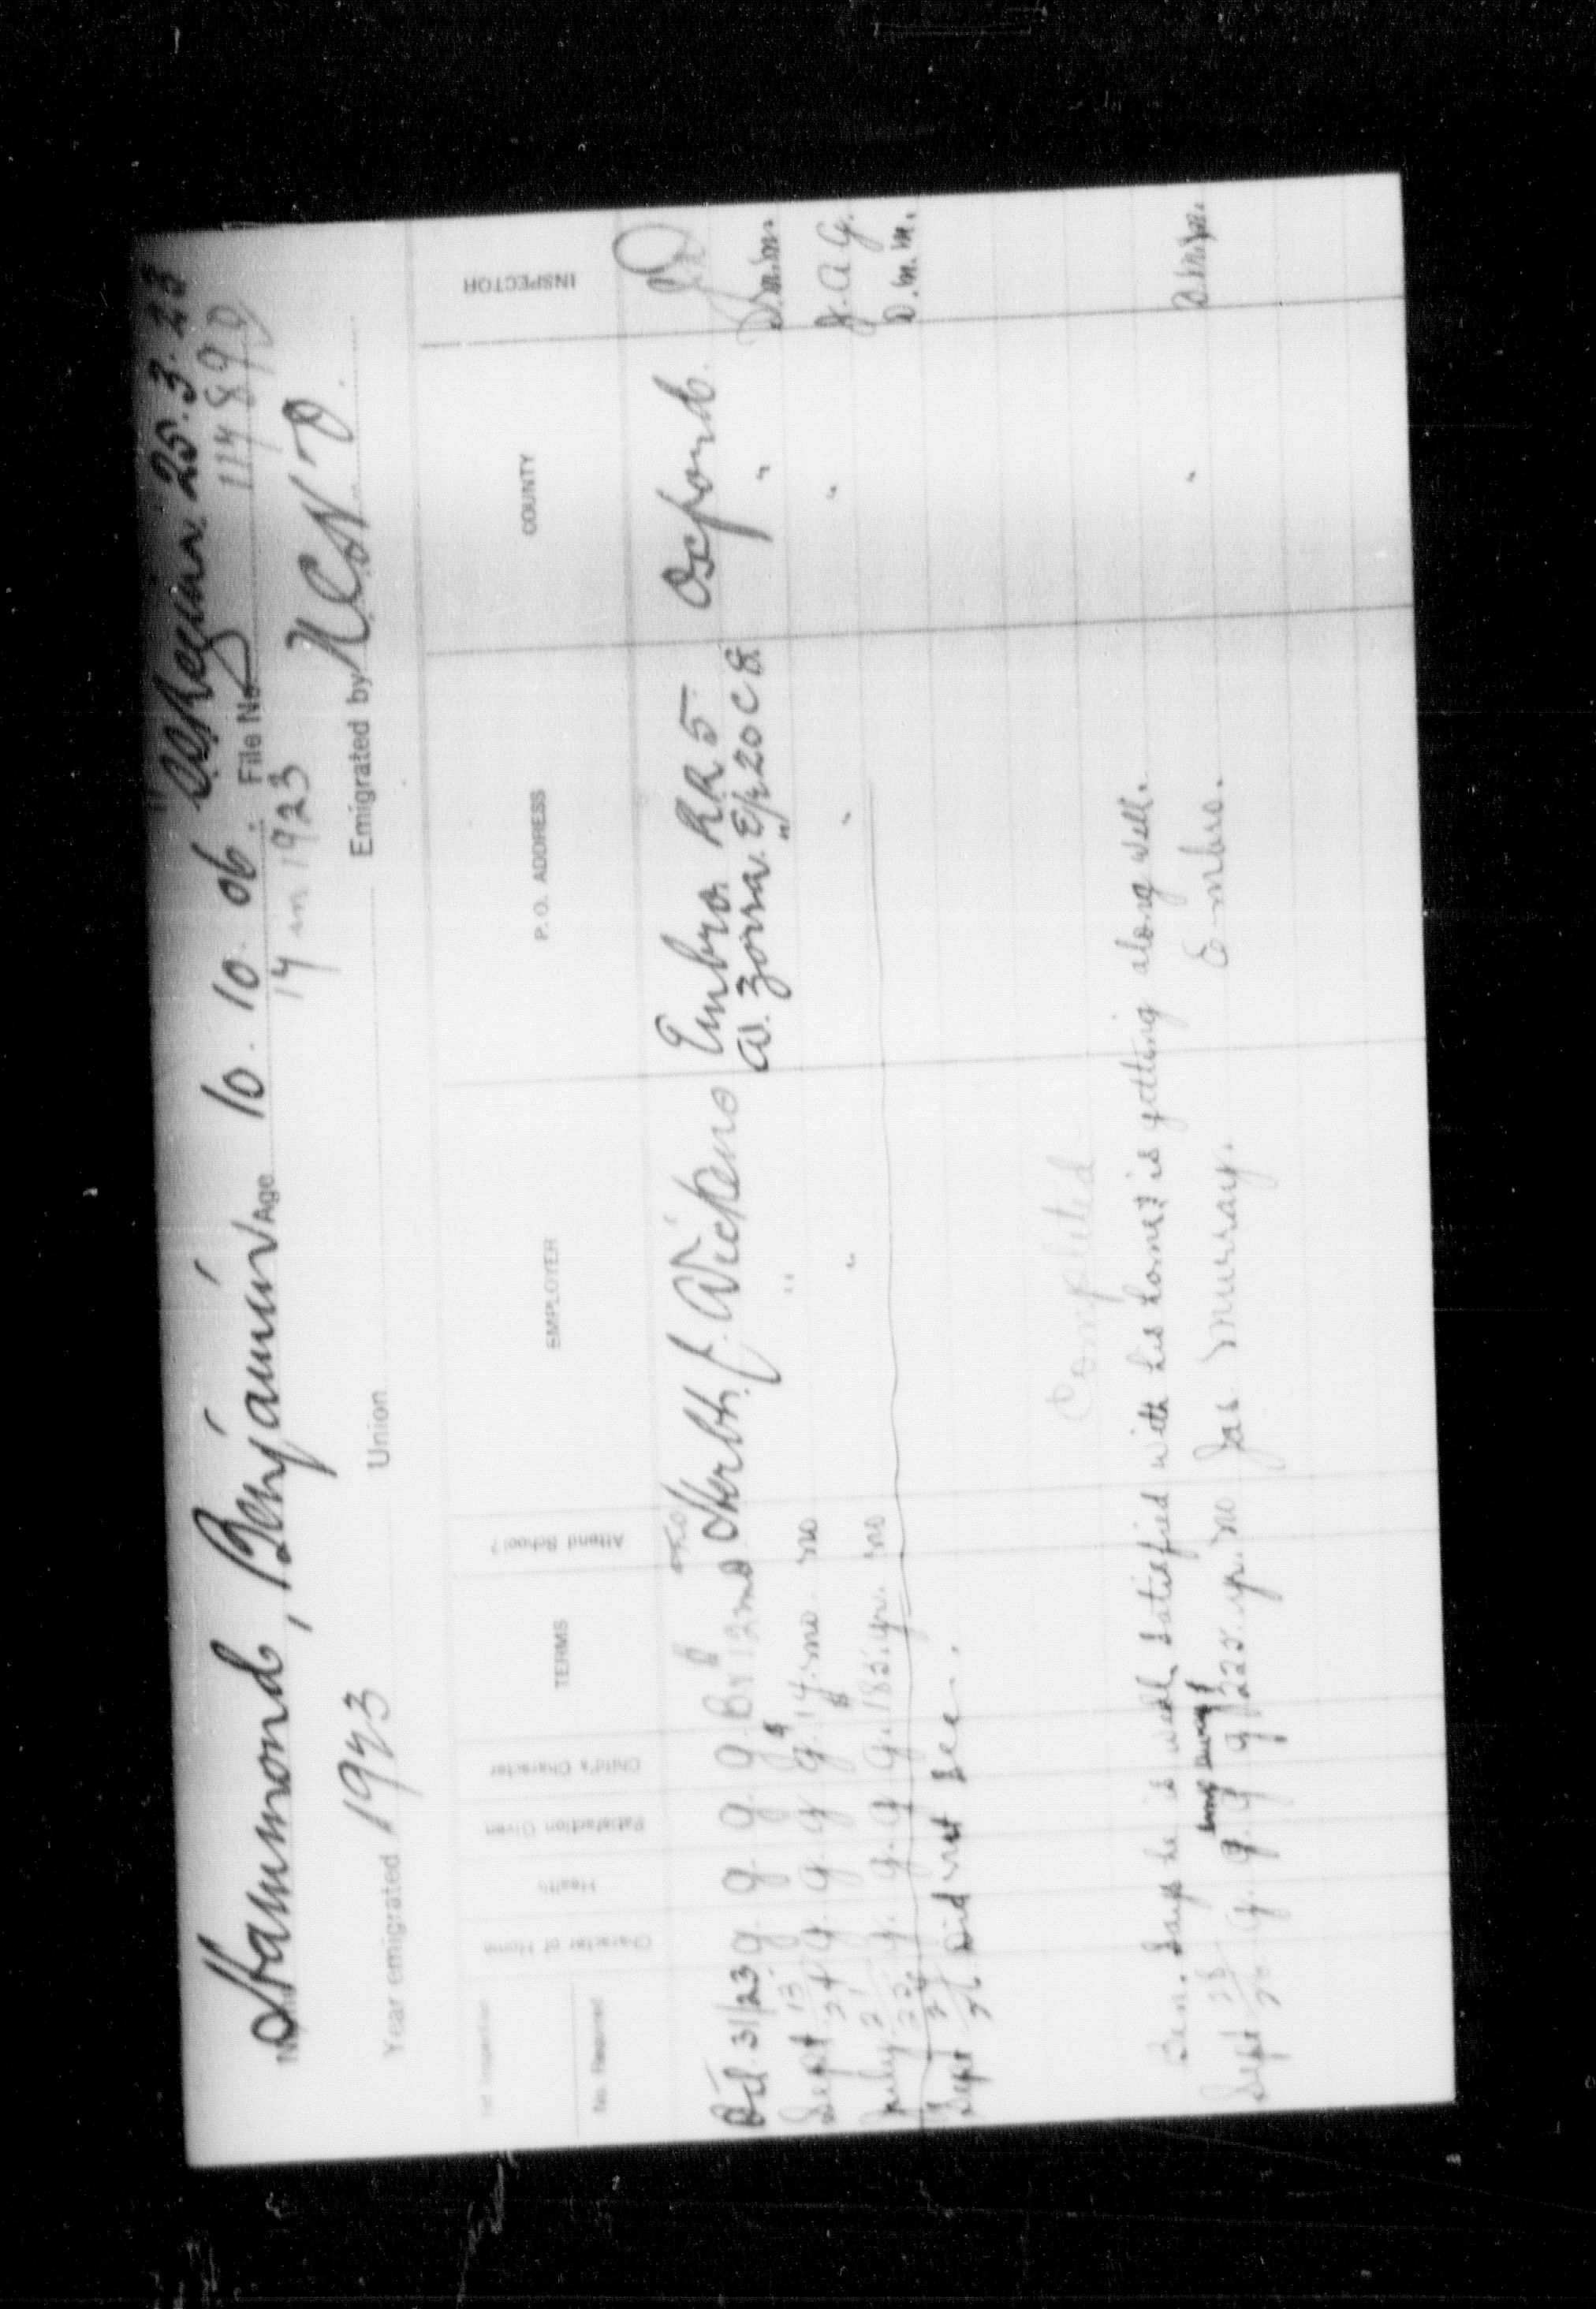 SS Regina 25.3.23
Name Hammond, Benjamin Age 10. 10. 06. File No. 117890
17 in 1923
Year emigrated 1923 Union Emigrated by N.C.H.O.
Inspection
No. Required Character of Home Health Satisfaction Given Child's Character TERMS Attend School? EMPLOYER P. O. ADDRESS COUNTY INSPECTOR
Oct 31/23 g. g. g. g. 12 mo Herbt J. Wickens Embro RR 5 Oxford.
W. Zorra E½ 20 C 8.
Sept 13/24 g. g. g. g. $ 14. mo. no " " " D.M.M.
July 21/25 g. g. g. g. $ 185. yr. no " " " J.A.G.
Sept 24/26 Did not see. D.M.M.
Completed
Ben. says he is well satisfied with his home & is getting along well.
Sept 28/26 g. g. g. g. $ 225. yr. no Jas Murray. Embro. " D.M.M.